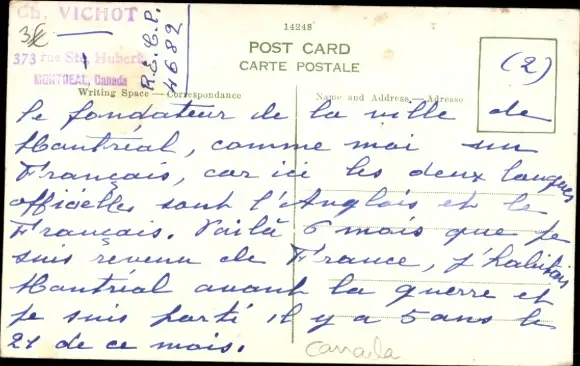 Ch. VICHOT
373 rue Ste. Hubert
MONTREAL, Canada
R.E.C.P.
4682
14248
POST CARD
CARTE POSTALE
(2)
Writing Space — Correspondance
Name and Address — Adresse
le fondateur de la ville de
Montréal, comme moi un
Français, car ici les deux langues
officielles sont l'Anglais et le
Français. Voilà 6 mois que je
suis revenu de France, j'habitais
Montréal avant la guerre et
je suis parti il y a 5 ans le
21 de ce mois.
Canada